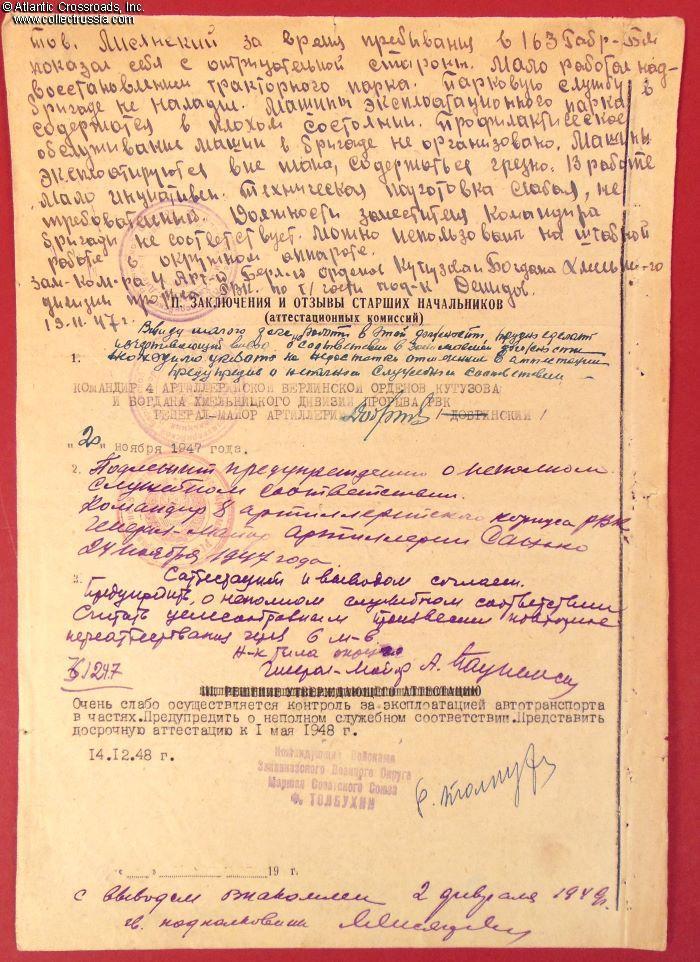 © Atlantic Crossroads, Inc.
www.collectrussia.com
тов. за время пребывания в 163 Габр-БМ
показал себя с отрицательной стороны. Мало работал над
восстановлением тракторного парка. Парковую службу в
бригаде не наладил. Машины эксплоатационного парка
содержатся в плохом состоянии. Профилактическое
обслуживание машин в бригаде не организовано. Машины
эксплоатируются вне плана, содержаться грязно. В работе
мало инициативен. Техническая подготовка слабая, не
требовательный. Должности заместителя командира
бригады не соответствует. Можно использовать на штабной
работе в окружном аппарате.
Зам. ком-ра 4 Арт-й Берл-й орденов Кутузова и Богдана Хмельн-го
дивизии пр РВК по т/части под-к
19.11.47 г.
П. ЗАКЛЮЧЕНИЯ И ОТЗЫВЫ СТАРШИХ НАЧАЛЬНИКОВ
(аттестационных комиссий)
Ввиду малого работы в этой должности, трудно сделать
исчерпывающий вывод о соответствии в занимаемой должности
необходимо указать на недостатки отмеченные в аттестации
предупредив о неполном служебном соответствии
1.
КОМАНДИР 4 АРТИЛЛЕРИЙСКОЙ БЕРЛИНСКОЙ ОРДЕНОВ КУТУЗОВА
И БОГДАНА ХМЕЛЬНИЦКОГО ДИВИЗИИ ПРОРЫВА РВК
ГЕНЕРАЛ-МАЙОР АРТИЛЛЕРИИ / ДОБРИНСКИЙ /
"20" ноября 1947 года.
2. Подлежит предупреждению о неполном
служебном соответствии.
Командир 8 артиллерийского корпуса РВК
генерал-майор артиллерии
24 ноября 1947 года.
3. С аттестацией и выводом согласен.
Предупредить о неполном служебном соответствии
Считать целесообразным произвести повторное
переаттестование через 6 м-в
Н-к тыла округа
генерал-майор А.
1247
Ш. РЕШЕНИЕ УТВЕРЖДАЮЩЕГО АТТЕСТАЦИЮ
Очень слабо осуществляется контроль за эксплоатацией автотранспорта
в частях.Предупредить о неполном служебном соответствии.Представить
досрочную аттестацию к I мая 1948 г.
14.I2.48 г.
Командующий Войсками
Закавказского Военного Округа
Маршал Советского Союза
Ф. ТОЛБУХИН
19 г.
с выводом ознакомлен 2 февраля 1948г.
гв. подполковник